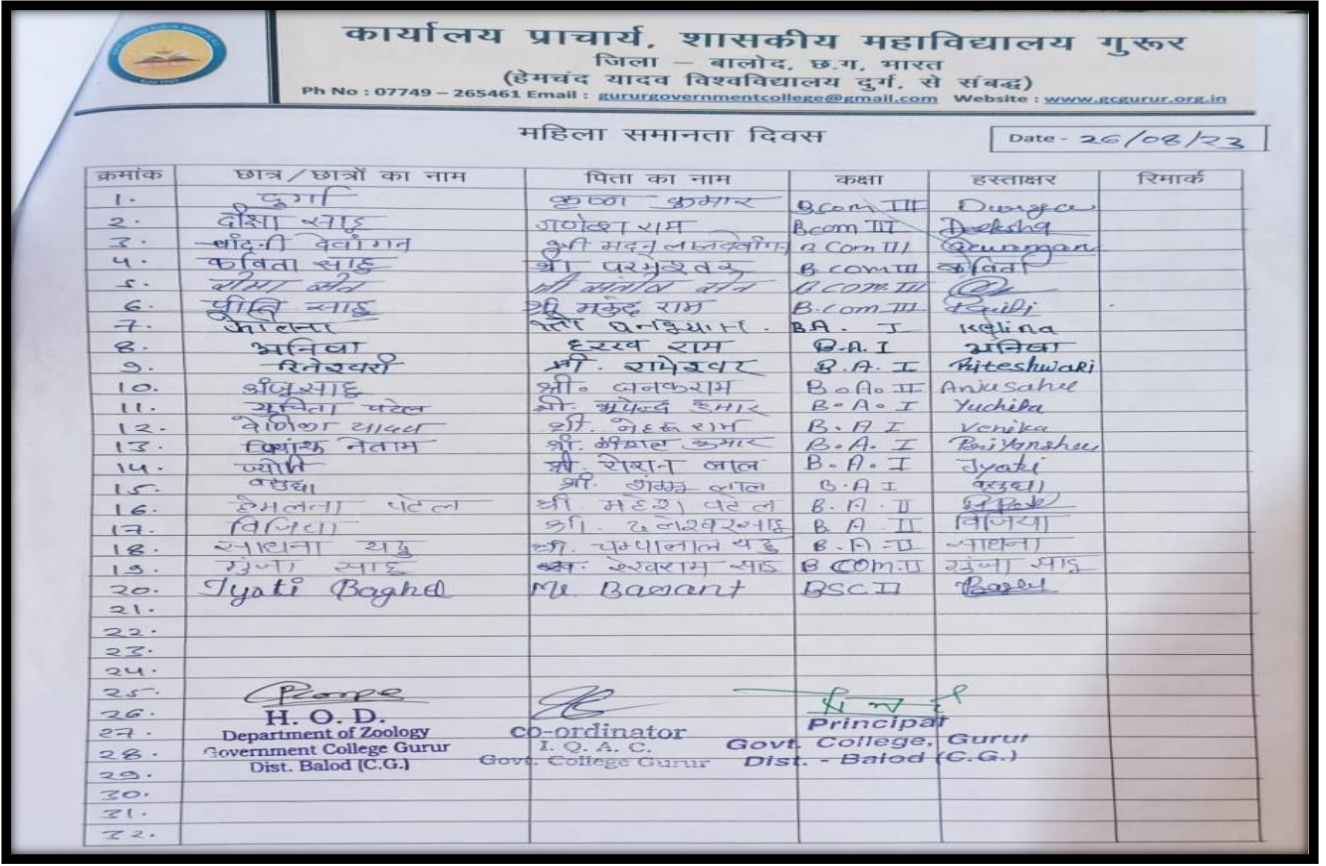 कार्यालय प्राचार्य, शासकीय महाविद्यालय गुरूर
जिला – बालोद, छ.ग. भारत
(हेमचंद यादव विश्वविद्यालय दुर्ग, से संबद्ध)
Ph No : 07749 – 265461 Email : gururgovernmentcollege@gmail.com Website : www.gcgurur.org.in
महिला समानता दिवस
Date - 26/08/23
क्रमांक छात्र/छात्रों का नाम पिता का नाम कक्षा हस्ताक्षर रिमार्क
1. दुर्गा कृष्ण कुमार Bcom III Durga
2. दीक्षा साहू गणेश राम Bcom III Deeksha
3. चांदनी देवांगन श्री मदन लाल देवांगन B Com III
4. कविता साहू श्री परमेश्वर B com III कविता
5. सीमा सेन श्री संतोष सेन B COM. III
6. प्रीति साहू श्री मकुंद राम B.com III
7. घनश्याम . B.A. I Kelina
8. राम B.A. I
9. रितेश्वरी श्री. रामेश्वर B.A. I Riteshwari
10. अंजू साहू श्री. जनकराम B.A. II Anjusahu
11. युचिता पटेल श्री. भूपेन्द्र कुमार B.A. I
12. वेणिका यादव श्री. नेहरू राम B.A I Venika
13. नेताम श्री. कुमार B.A. I Priyanshu
14. ज्योति श्री. रोशन लाल B.A. I Jyoti
15. वसुधा श्री. लाल B.A I वसुधा
16. हेमलता पटेल श्री. महेश पटेल B.A. II
17. विजिया श्री. B.A. II विजिया
18. साधना यदु श्री. चम्पालाल यदु B.A-II साधना
19. गुंजा साहू साहू B COM.II गुंजा साहू
20. Jyoti Baghel Mr. Basant BSC II
21.
22.
23.
24.
25.
26.
27.
28.
29.
30.
31.
32.
H. O. D.
Department of Zoology
Government College Gurur
Dist. Balod (C.G.)
co-ordinator
I. Q. A. C.
Govt. College Gurur
Principal
Govt. College, Gurur
Dist. - Balod (C.G.)